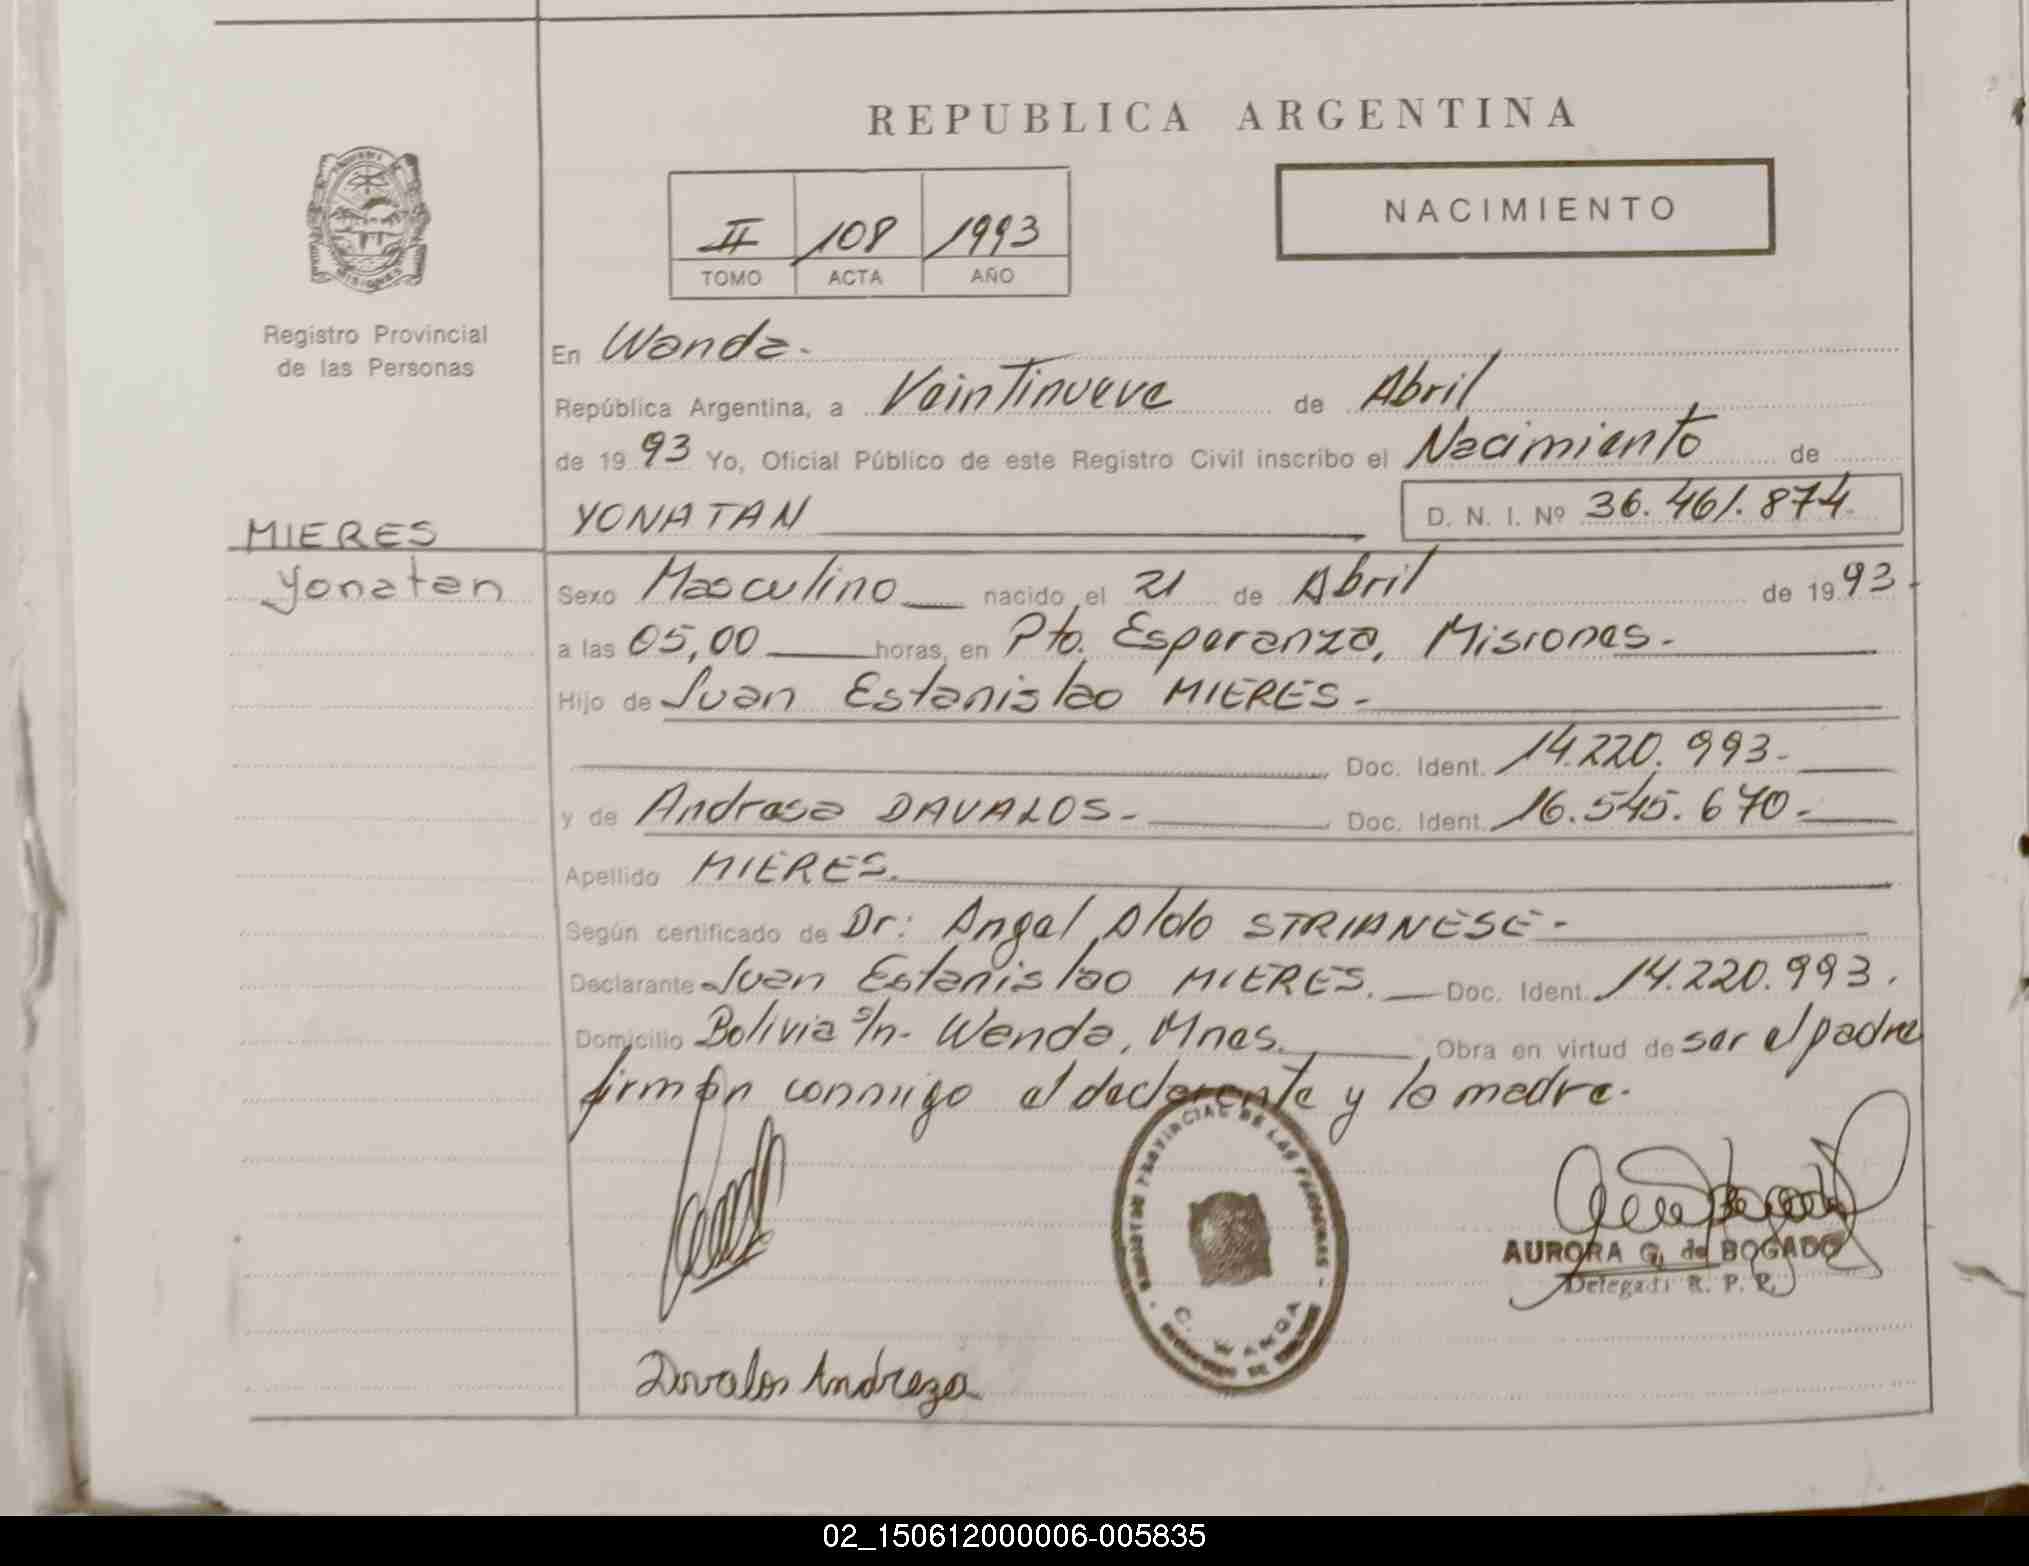 REPUBLICA ARGENTINA
II 108 1993
TOMO ACTA AÑO
NACIMIENTO
Registro Provincial
de las Personas
En Wanda.
República Argentina, a Veintinueve de Abril
de 1993 Yo, Oficial Público de este Registro Civil inscribo el Nacimiento de
YONATAN D. N. I. Nº 36.461.874
MIERES
Yonatan
Sexo Masculino nacido el 21 de Abril de 1993
a las 05,00 horas, en Pto. Esperanza, Misiones.
Hijo de Juan Estanislao MIERES.
Doc. Ident. 14.220.993.
y de Andresa DAVALOS. Doc. Ident. 16.545.670.
Apellido MIERES.
Según certificado de Dr: Angel Aldo STRIANESE.
Declarante Juan Estanislao MIERES. Doc. Ident. 14.220.993.
Domicilio Bolivia s/n. Wanda, Mnes. Obra en virtud de ser el padre
firman conmigo el declarante y la madre.
REGISTRO PROVINCIAL DE LAS PERSONAS
WANDA
AURORA G. de BOGADO
Delegada R. P. P.
Davalos Andreza
02_150612000006-005835